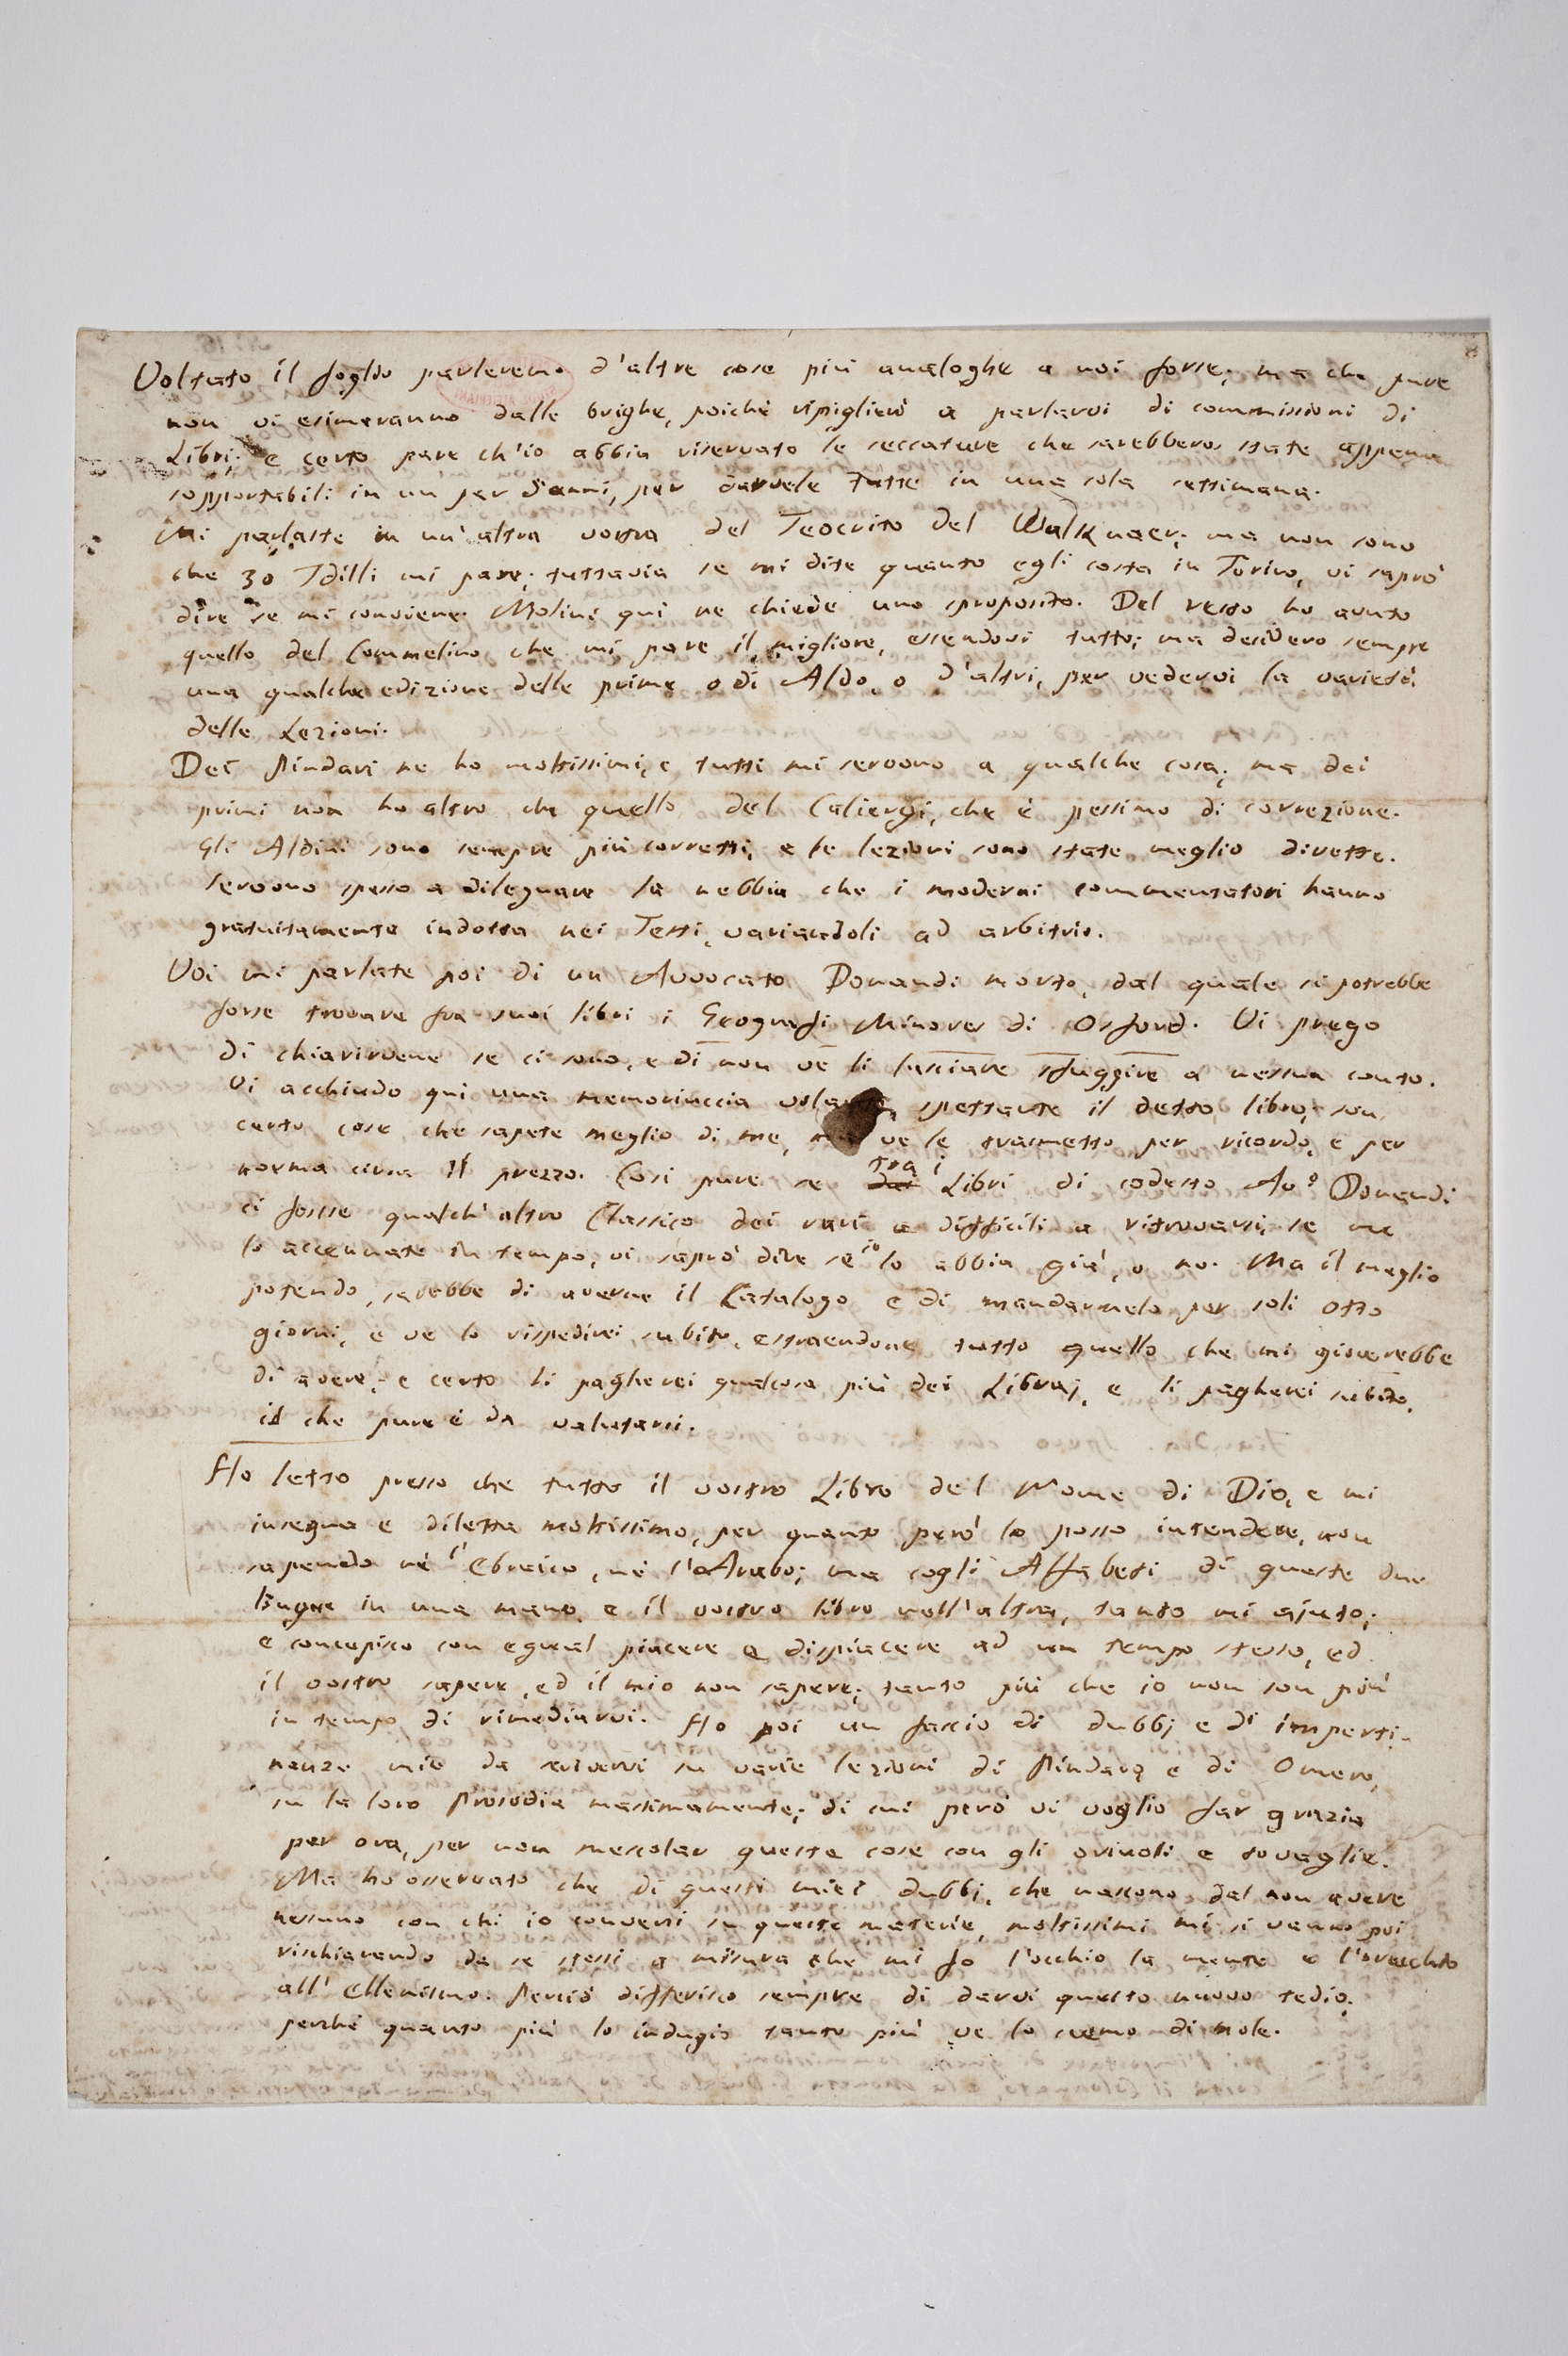 Voltato il foglio parleremo d'altre cose più analoghe a noi forse; ma che pure
non vi esimeranno dalle brighe, poiché ripiglierò a parlarvi di commissioni di
Libri; e certo pare ch'io abbia riservato le seccature che sarebbero state appena
sopportabili in un par d'anni, per darvele tutte in una sola settimana.
Mi parlaste in un'altra vostra del Teocrito del Walknaer; ma non sono
che 30 Idilli mi pare; tuttavia se mi dite quanto egli costa in Torino, vi saprò
dire se mi conviene. Molini qui ne chiede uno sproposito. Del resto ho avuto
quello del Commelino che mi pare il migliore, essendovi tutto; ma desidero sempre
una qualche edizione delle prime o di Aldo, o d'altri, per vedervi la varietà
delle Lezioni.
Dei Pindari ne ho moltissimi, e tutti mi servono a qualche cosa; ma dei
primi non ho altro che quello del Caliergi, che è pessimo di correzione.
Gli Aldini sono sempre più corretti, e le lezioni sono state meglio dirette.
Servono spesso a dileguare la nebbia che i moderni commentatori hanno
gratuitamente indotta nei Testi, variandoli ad arbitrio.
Voi mi parlate poi di un Avvocato Donaudi morto, dal quale si potrebbe
forse trovare fra suoi libri i Geografi Minores di Osford. Vi prego
di chiarirvene se ci sono, e di non ve li lasciare sfuggire a nessun conto.
Vi acchiudo qui una memoriuccia volante, spettante il detto libro; son
certo cose che sapete meglio di me, ma ve le trasmetto per ricordo, e per
norma circa il prezzo. Così pure se tra i Libri di codesto Avo Donaudi
ci fosse qualch'altro Classico dei rari e difficili a ritrovarsi, se me
lo accennate in tempo, vi saprò dire se io lo abbia già, o no. Ma il meglio
potendo, sarebbe di averne il Catalogo e di mandarmelo per soli otto
giorni, e ve lo rispedirei subito, estraendone tutto quello che mi gioverebbe
di avere; e certo li pagherei qualcosa più dei Libraj, e li pagherei subito,
il che pure è da valutarsi.
Ho letto presso che tutto il vostro Libro del Nome di Dio, e mi
insegna e diletta moltissimo, per quanto però lo posso intendere, non
sapendo né l'Ebraico, né l'Arabo; ma cogli Alfabeti di queste due
lingue in una mano, e il vostro libro nell'altra, tanto mi ajuto;
e concepisco con egual piacere e dispiacere ad un tempo stesso, ed
il vostro sapere, ed il mio non sapere; tanto più che io non son più
in tempo di rimediarvi. Ho poi un fascio di dubbj e di imperti-
nenze mie da scrivervi su varie lezioni di Pindaro e di Omero,
su la loro Prosodia massimamente; di cui però vi voglio far grazia
per ora, per non mescolar queste cose con gli orivoli e tovaglie.
Ma ho osservato che di questi miei dubbj, che nascono dal non avere
nessuno con chi io conversi su queste materie, moltissimi mi si vanno poi
rischiarendo da se stessi a misura che mi fo l'occhio la mente e l'orecchio
all'Ellenismo. Perciò differisco sempre di darvi questo nuovo tedio;
perché quanto più lo indugio tanto più ve lo scemo di mole.